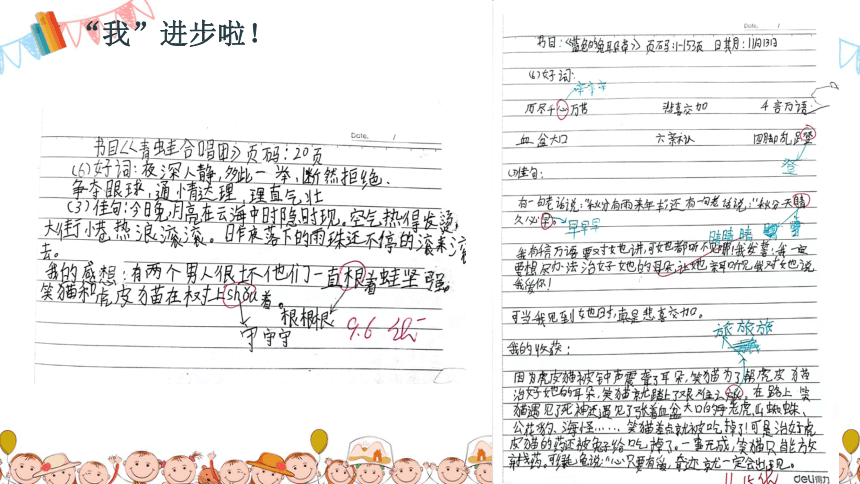 “我”进步啦！
书目《青蛙合唱团》页码：20页
(6)好词：夜深人静，多此一举，断然拒绝、
争夺眼球，通情达理，理直气壮
(3)佳句：今日兔月高在云海中时隐时现。空气热得发烫，
大街小巷热浪滚滚。 落下的雨珠还不停的滚来滚
去。
我的感想：有两个男人很坏他们一直根着蛙坚强。
笑猫和虎皮猫在树上shǒu着。
根根根
守守守
9.6
书目：《蓝色的兔耳朵草》 页码：1-153页 日期：11月13日
(6)好词：
辛辛辛
历尽千 万苦 悲喜交加 千言万语
血盆大口 六亲不认 四脚乱登
蹬
(2)佳句：
有一句老话说：“秋分有雨来年丰”还有一句老话说：“秋分天晴
久必旱。
旱旱旱
晴晴晴
我有千言万语要对她说，可她都听不见 我发誓：我一定
要想尽办法治好她的耳朵，让她亲耳听见我对她说
我爱你！
可当我见到她时，真是悲喜交加。
旅旅旅
我的收获：
因为虎皮猫被钟声震聋了耳朵，笑猫为了帮虎皮猫
治好她的耳朵，笑猫就踏上了艰难之旅。在路上笑
猫遇见了死神还遇见了张着血盆大口的 老虎、 蜘蛛、
公花狗、海怪……笑猫差点就被吃掉了！可是治好虎
皮猫的药还被兔子给吃掉了。一事无成，笑猫只能
找药。 龟说：“心中只要有爱，奇迹就一定会出现。
11.15
deli得力